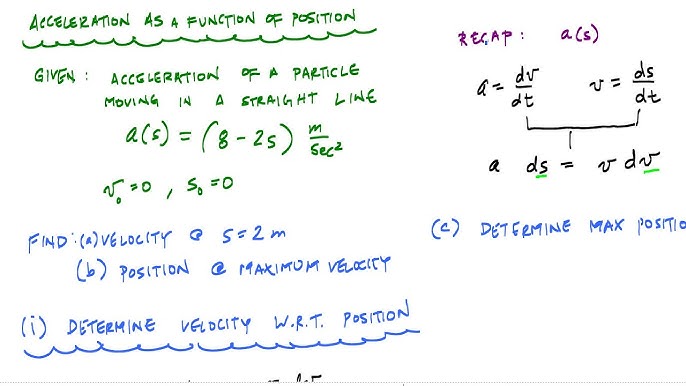 ACCELERATION AS A FUNCTION OF POSITION
GIVEN: ACCELERATION OF A PARTICLE
MOVING IN A STRAIGHT LINE
a(s) = (8 - 2s) m/sec²
v₀ = 0, s₀ = 0
FIND: (a) VELOCITY @ s = 2 m
(b) POSITION @ MAXIMUM VELOCITY
(i) DETERMINE VELOCITY W.R.T. POSITION
RECAP: a(s)
a = dv/dt v = ds/dt
a ds = v dv
(c) DETERMINE MAX POSITIO